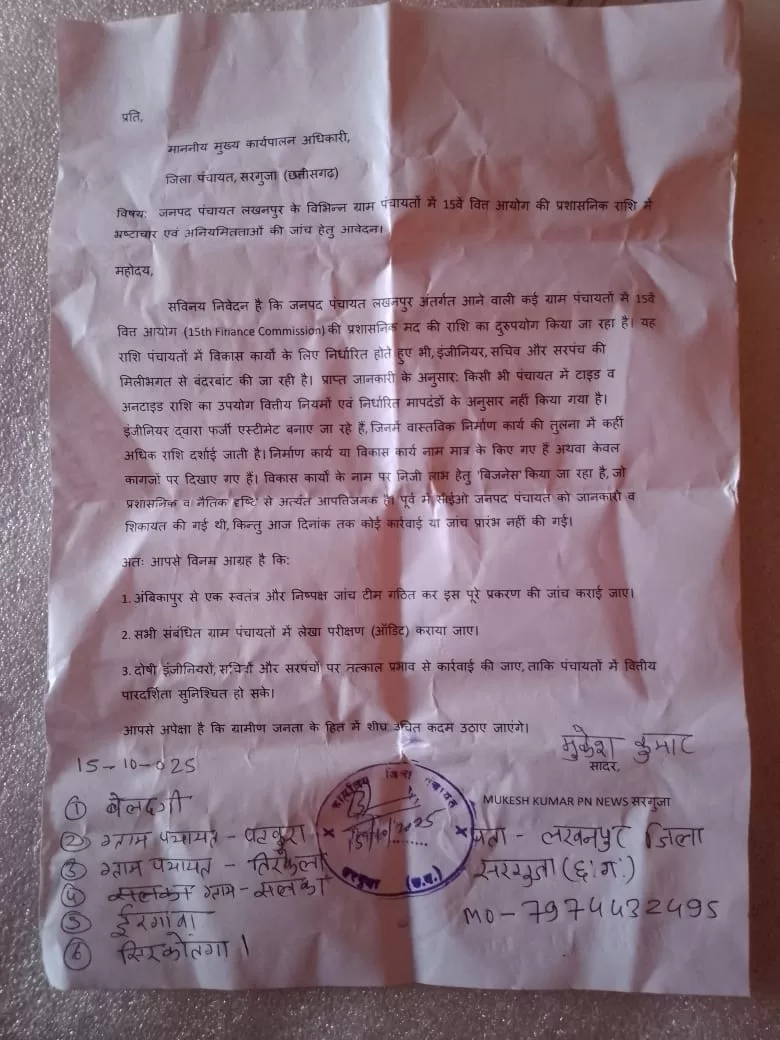 प्रति,
माननीय मुख्य कार्यपालन अधिकारी,
जिला पंचायत, सरगुजा (छत्तीसगढ़)
विषय: जनपद पंचायत लखनपुर के विभिन्न ग्राम पंचायतों में 15वें वित्त आयोग की प्रशासनिक राशि में
भ्रष्टाचार एवं अनियमितताओं की जांच हेतु आवेदन।
महोदय,
सविनय निवेदन है कि जनपद पंचायत लखनपुर अंतर्गत आने वाली कई ग्राम पंचायतों में 15वें
वित्त आयोग (15th Finance Commission) की प्रशासनिक मद की राशि का दुरुपयोग किया जा रहा है। यह
राशि पंचायतों में विकास कार्यों के लिए निर्धारित होते हुए भी, इंजीनियर, सचिव और सरपंच की
मिलीभगत से बंदरबांट की जा रही है। प्राप्त जानकारी के अनुसार: किसी भी पंचायत में टाइड व
अनटाइड राशि का उपयोग वित्तीय नियमों एवं निर्धारित मापदंडों के अनुसार नहीं किया गया है।
इंजीनियर द्वारा फर्जी एस्टीमेट बनाए जा रहे हैं, जिनमें वास्तविक निर्माण कार्य की तुलना में कहीं
अधिक राशि दर्शाई जाती है। निर्माण कार्य या विकास कार्य नाम मात्र के किए गए हैं अथवा केवल
कागजों पर दिखाए गए हैं। विकास कार्यों के नाम पर निजी लाभ हेतु 'बिजनेस' किया जा रहा है, जो
प्रशासनिक व नैतिक दृष्टि से अत्यंत आपत्तिजनक है। पूर्व में सीईओ जनपद पंचायत को जानकारी व
शिकायत की गई थी, किन्तु आज दिनांक तक कोई कार्रवाई या जांच प्रारंभ नहीं की गई।
अतः आपसे विनम्र आग्रह है कि:
1. अंबिकापुर से एक स्वतंत्र और निष्पक्ष जांच टीम गठित कर इस पूरे प्रकरण की जांच कराई जाए।
2. सभी संबंधित ग्राम पंचायतों में लेखा परीक्षण (ऑडिट) कराया जाए।
3. दोषी इंजीनियरों, सचिवों और सरपंचों पर तत्काल प्रभाव से कार्रवाई की जाए, ताकि पंचायतों में वित्तीय
पारदर्शिता सुनिश्चित हो सके।
आपसे अपेक्षा है कि ग्रामीण जनता के हित में शीघ्र उचित कदम उठाए जाएंगे।
मुकेश कुमार
सादर,
15-10-025
MUKESH KUMAR PN NEWS सरगुजा
पता - लखनपुर जिला
सरगुजा (छ.ग.)
MO-7974432495
① बेलदगी
② ग्राम पंचायत - परकुरा
③ ग्राम पंचायत - तिरकेला
④ ग्राम - सलका
⑤ ईरगांवा
⑥ सिरकोतगा।
कार्यालय जिला पंचायत
सरगुजा (छ.ग.)